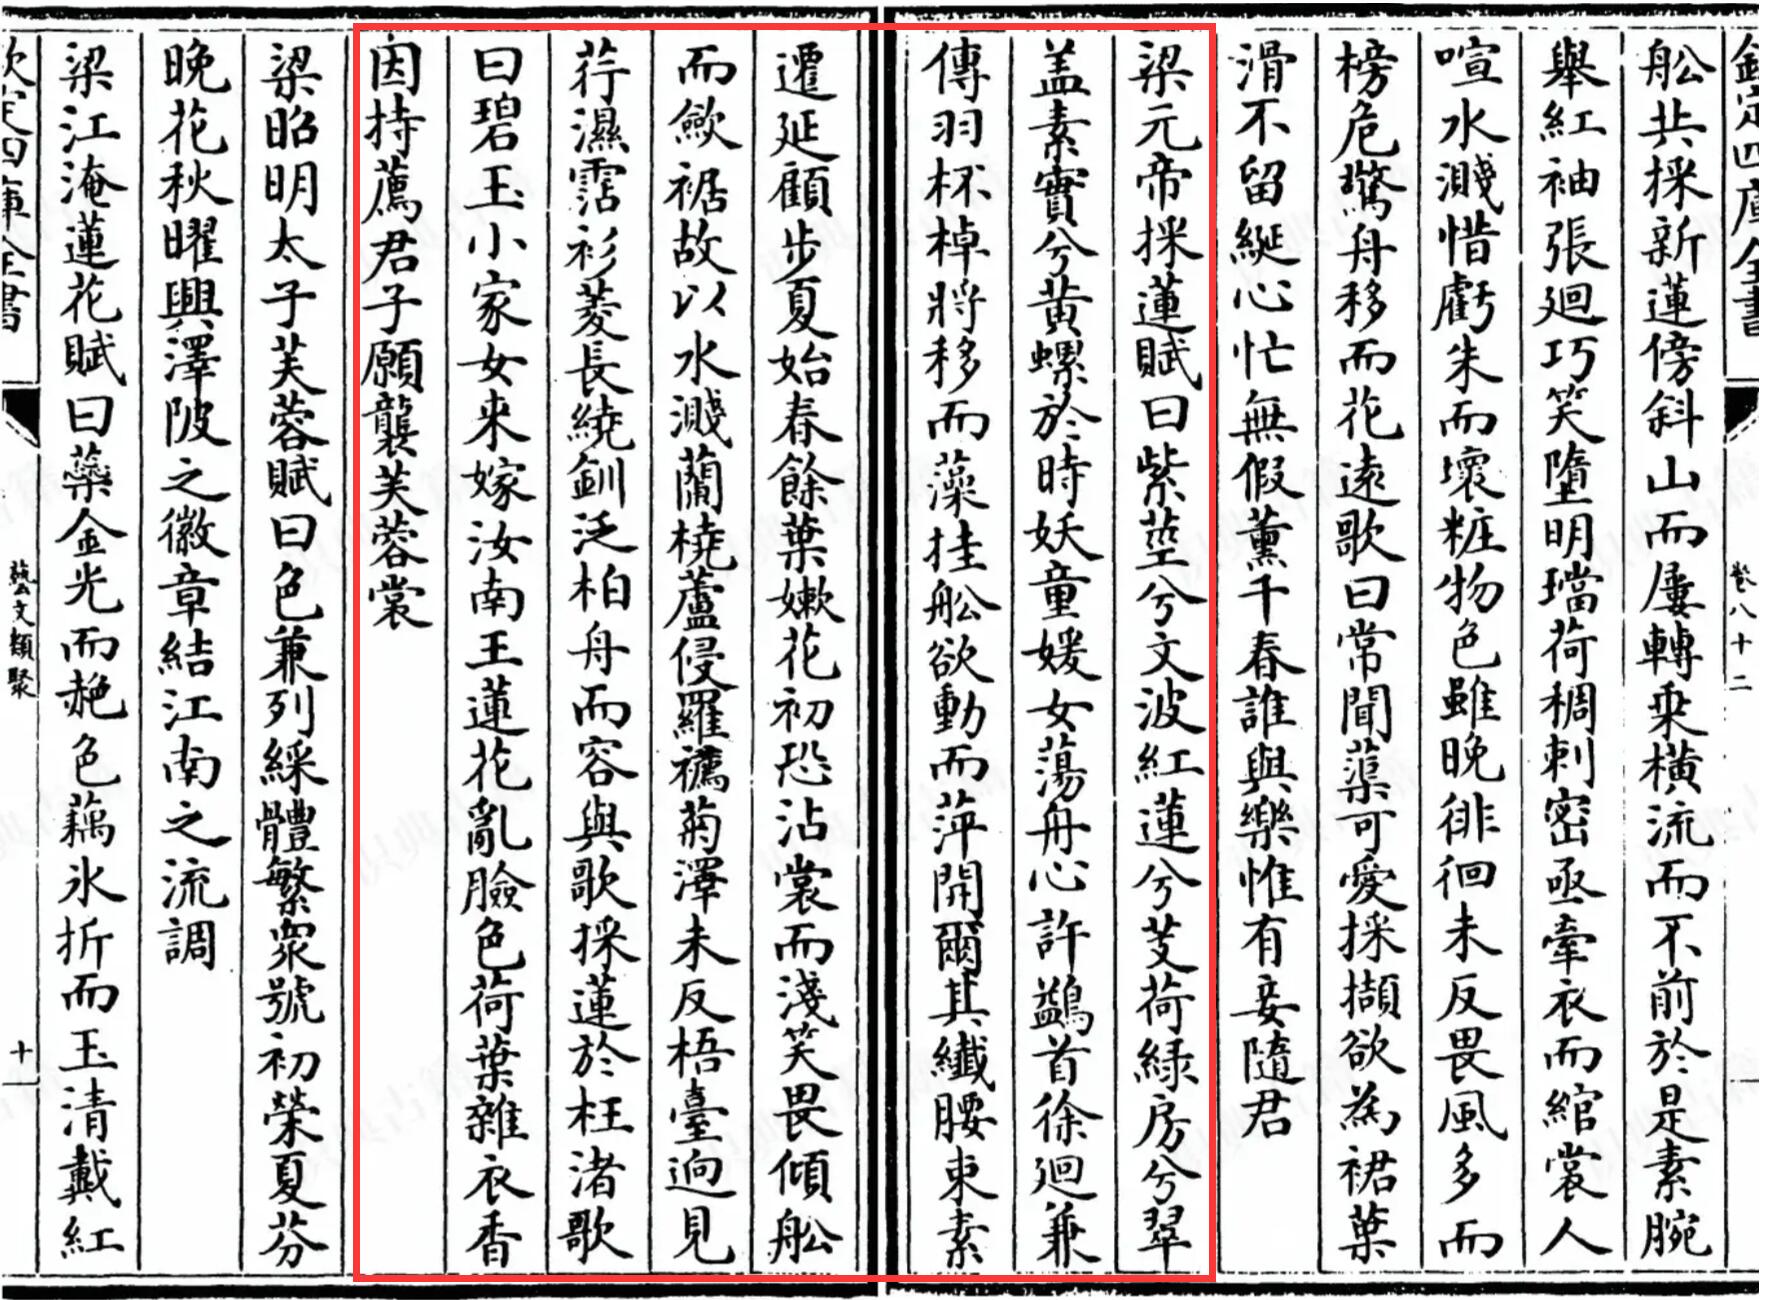 欽定四庫全書
卷八十二
舩共採新蓮傍斜山而屢轉乗橫流而不前於是素腕
舉紅袖張廻巧笑墮明璫荷稠刺密亟牽衣而綰裳人
喧水濺惜虧朱而壞粧物色雖晚徘徊未反畏風多而
榜危驚舟移而花逺歌曰常聞蕖可愛採擷欲為裙葉
滑不留綖心忙無假薫千春誰與樂惟有妾隨君
梁元帝採蓮賦曰紫莖兮文波紅蓮兮芰荷緑房兮翠
盖素實兮黄螺於時妖童媛女蕩舟心許鷁首徐廻兼
傳羽杯棹將移而藻挂舩欲動而萍開爾其纎腰束素
遷延顧步夏始春餘葉嫩花初恐沾裳而淺笑畏傾舩
而歛裾故以水濺蘭橈蘆侵羅襪菊澤未反梧臺逈見
荇濕霑衫菱長繞釧泛柏舟而容與歌採蓮於枉渚歌
曰碧玉小家女来嫁汝南王蓮花亂臉色荷葉雜衣香
因持薦君子願襲芙蓉裳
梁昭明太子芙蓉賦曰色兼列綵體繁衆號初榮夏芬
晚花秋曜興澤陂之徽章結江南之流調
梁江淹蓮花賦曰蘂金光而赩色藕氷折而玉清戴紅
欽定四庫全書
藝文類聚
十一